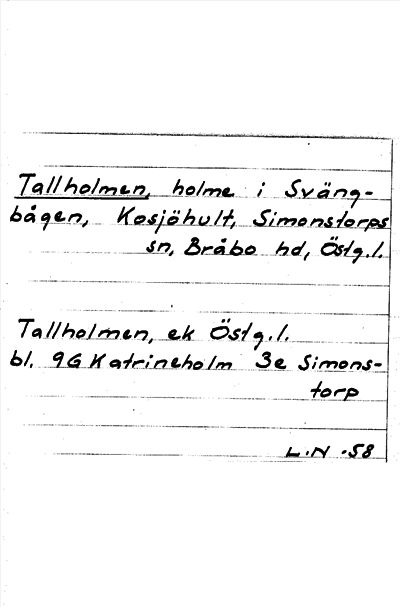 Tallholmen, holme i Sväng-
bågen, Kosjöhult, Simonstorps
sn, Bråbo hd, Östg.l.
Tallholmen, ek Östg.l.
bl. 9G Katrineholm 3e Simons-
torp
L.N -58